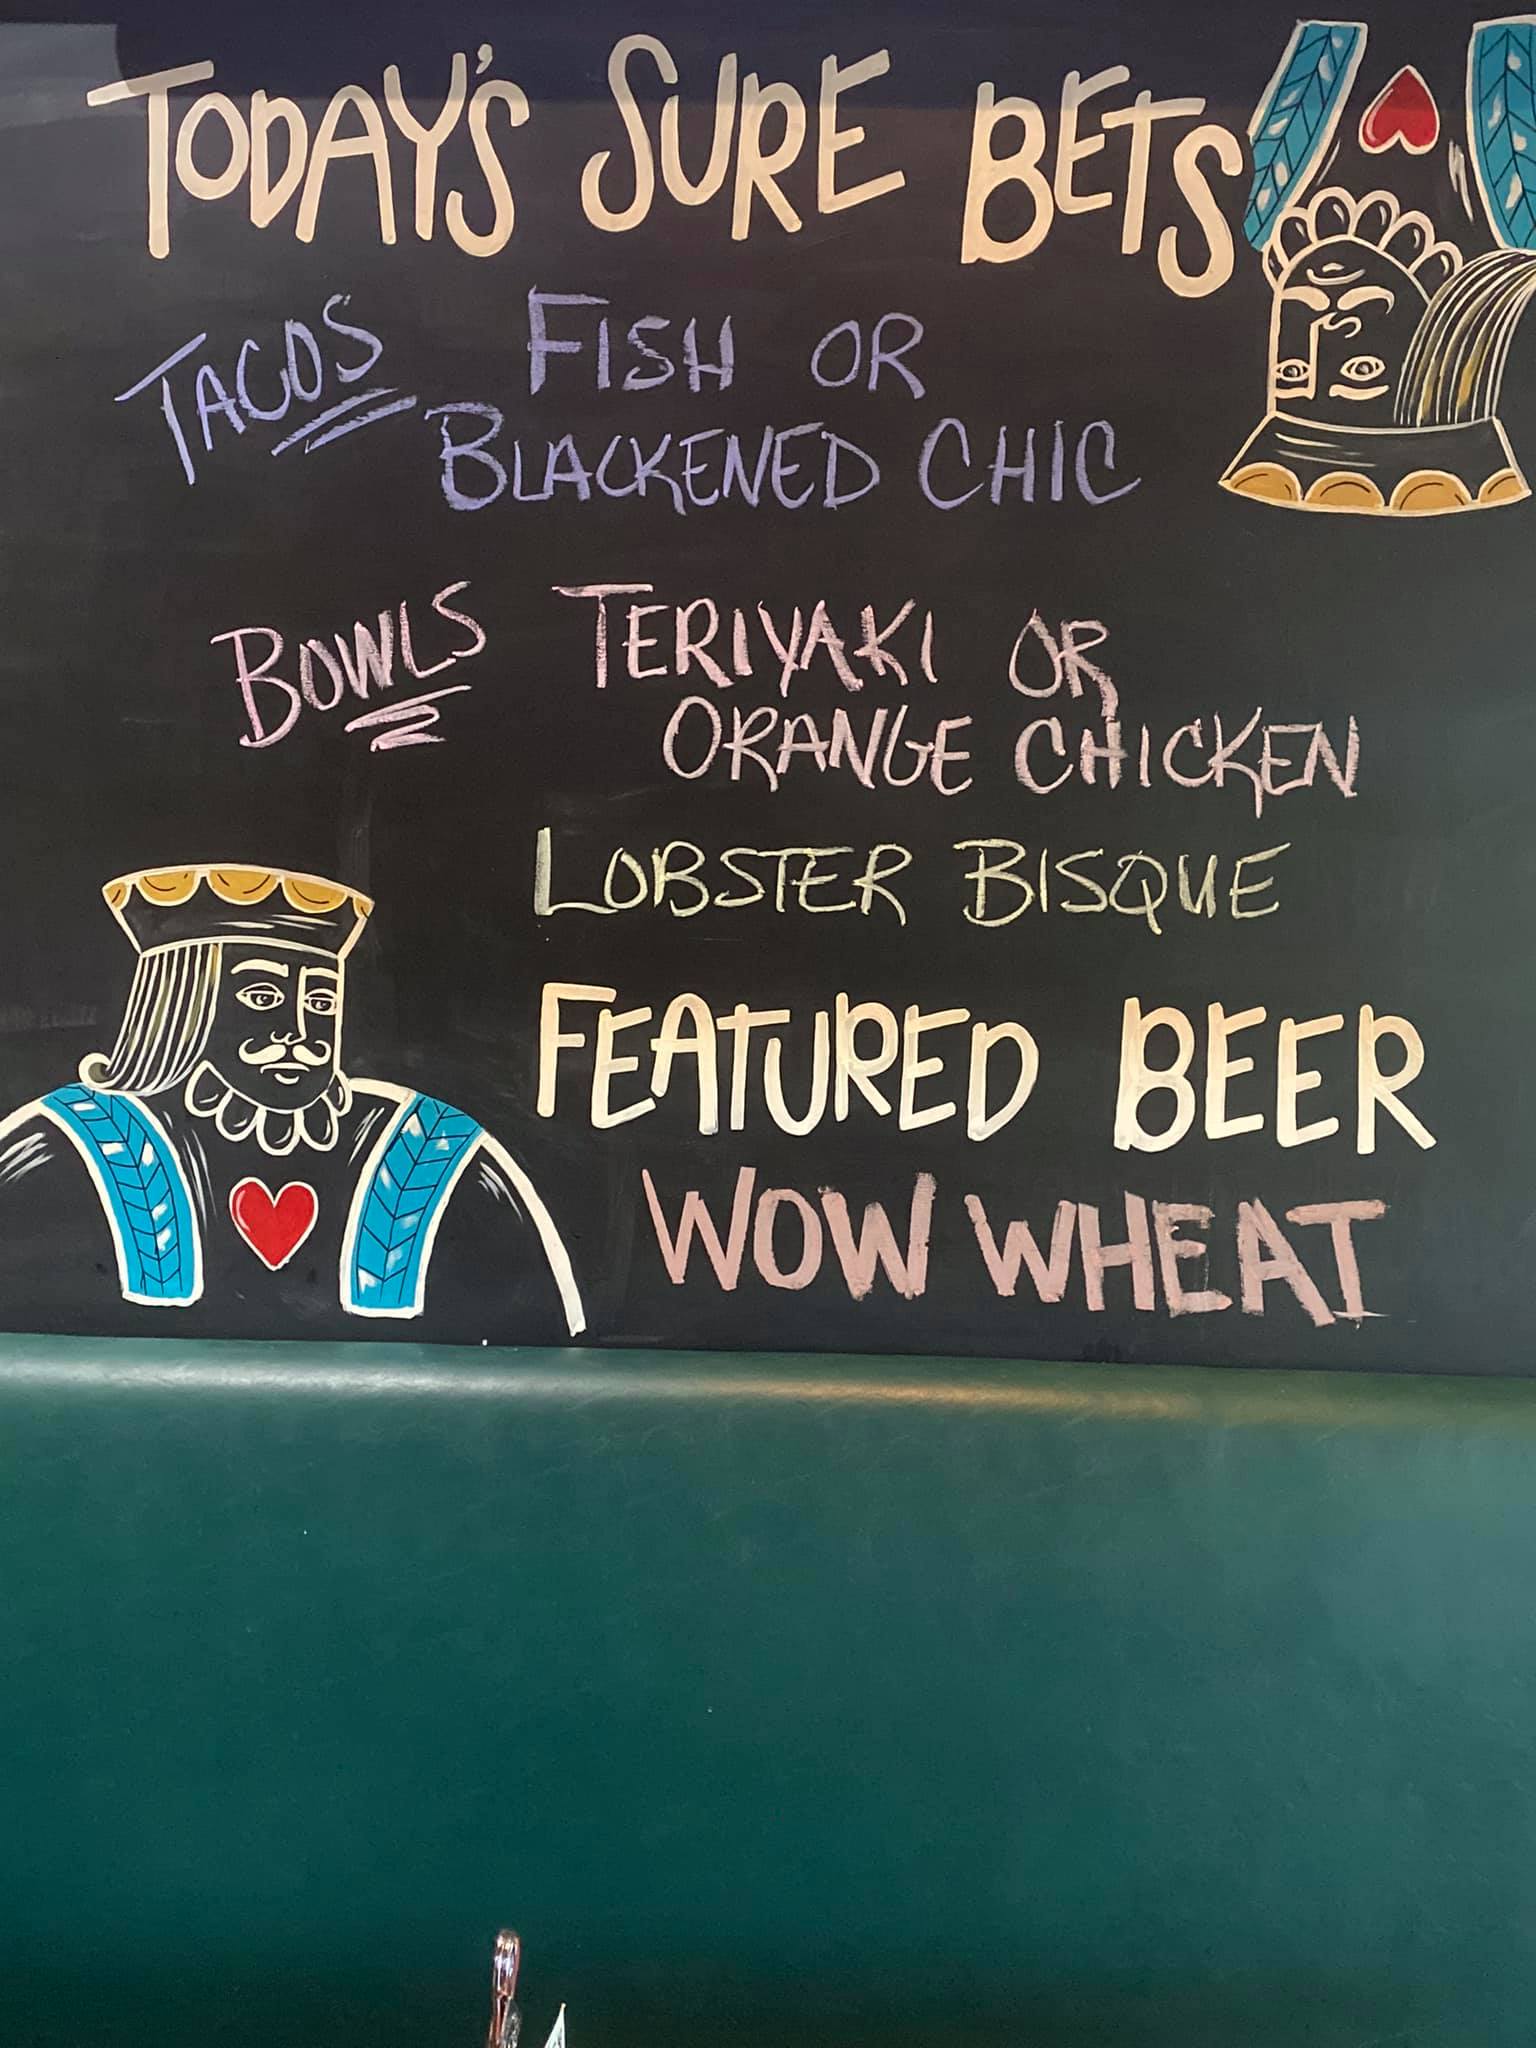 TODAY'S SURE BETS
TACOS FISH OR
BLACKENED CHIC
BOWLS TERIYAKI OR
ORANGE CHICKEN
LOBSTER BISQUE
FEATURED BEER
WOW WHEAT